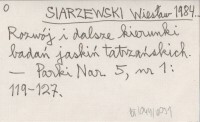 0
SIARZEWSKI Wiesław 1984..
Rozwój i dalsze kierunki
badań jaskiń tatrzańskich.
— Parki Nar. 5, nr 1:
119-127.